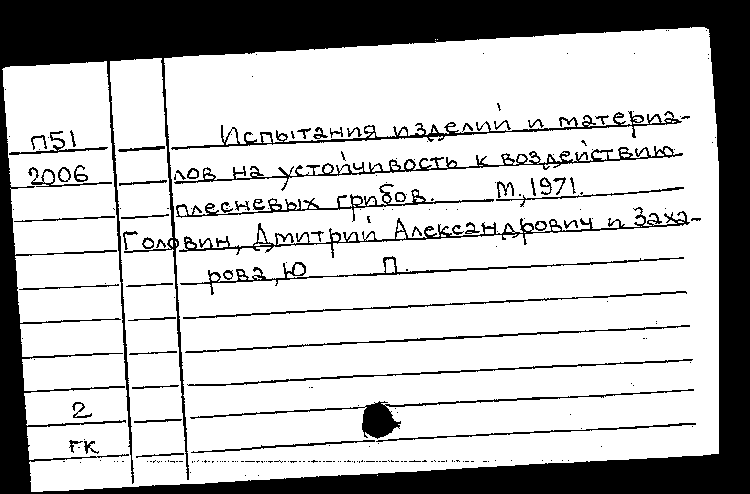 П51 Испытания изделий и материа-
2006 лов на устойчивость к воздействию
плесневых грибов. М, 1971.
Головин, Дмитрий Александрович и Заха-
рова, Ю П.
2
гк